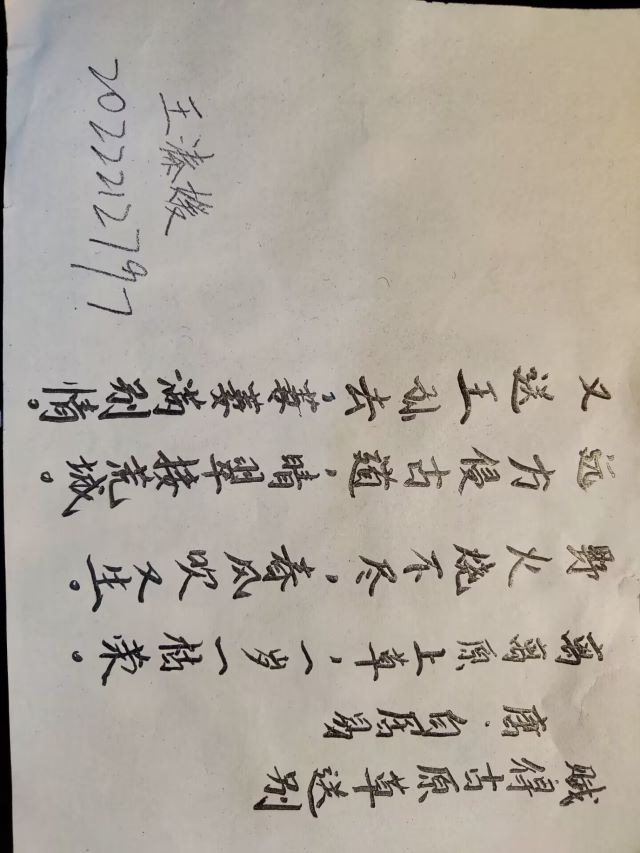 赋得古原草送别
唐·白居易
离离原上草，一岁一枯荣。
野火烧不尽，春风吹又生。
远方侵古道，晴翠接荒城。
又送王孙去，萋萋满别情。
王溱
2022212797